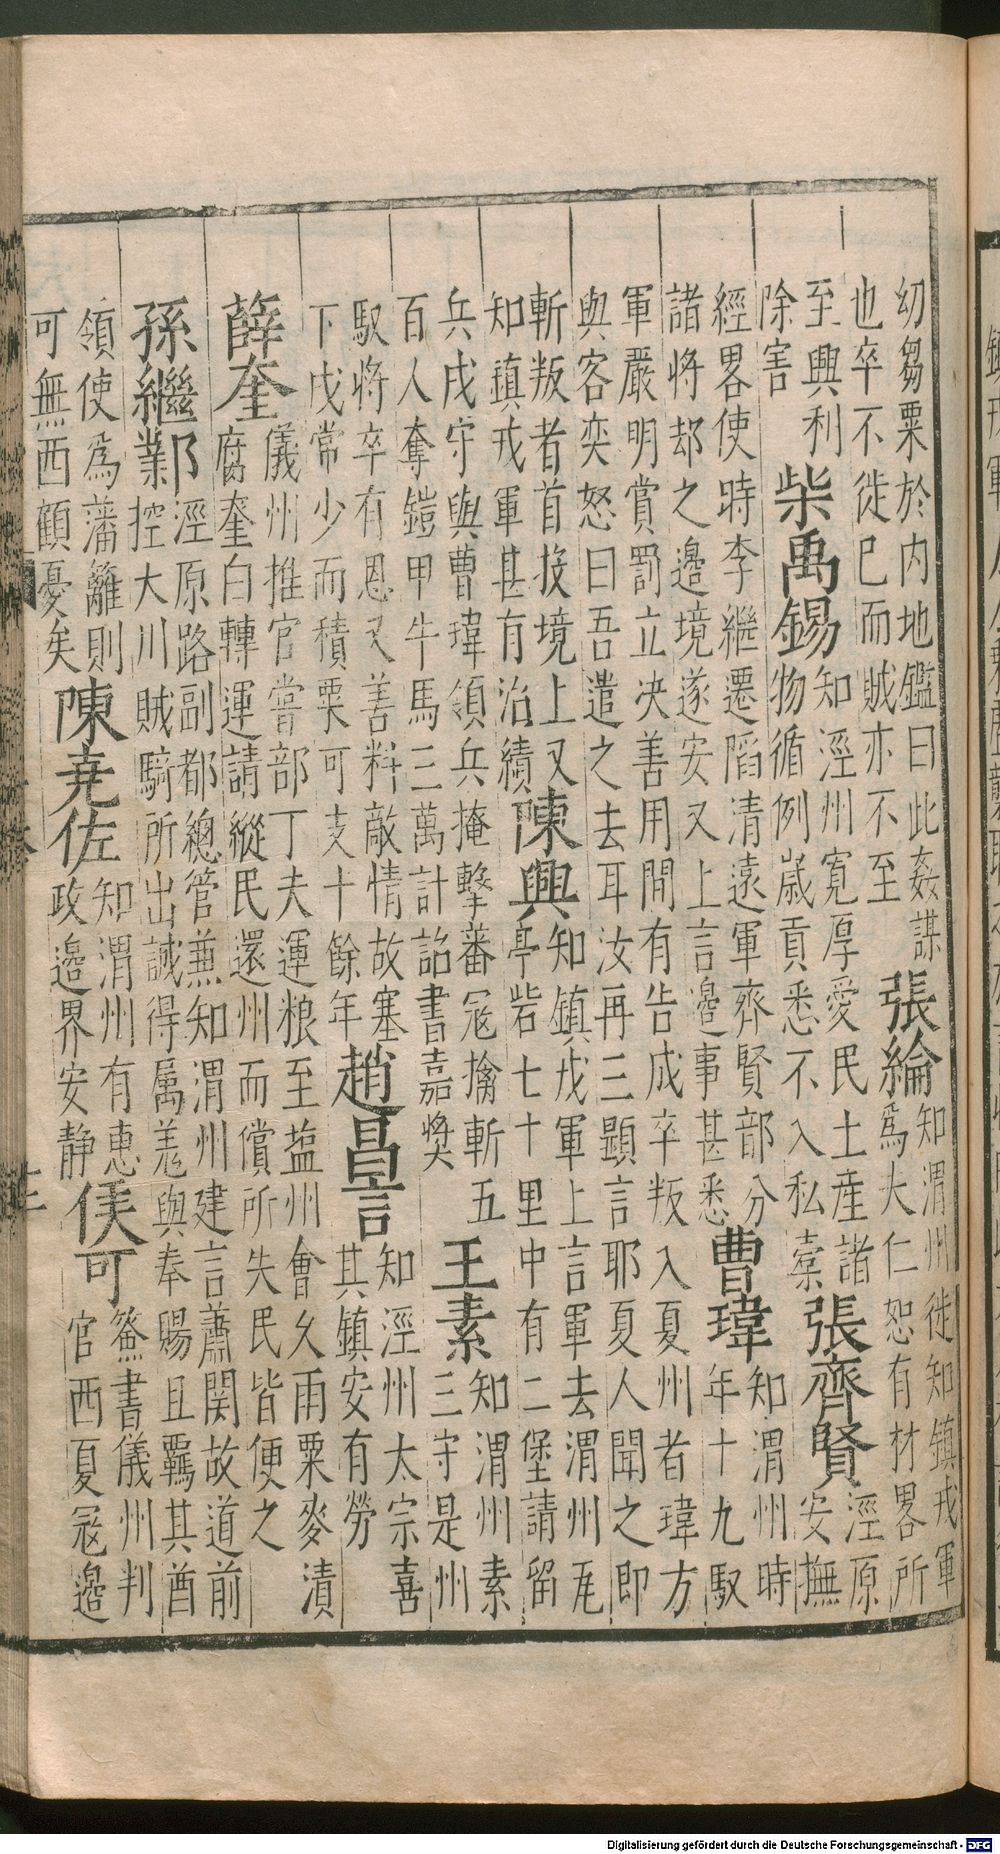 幼芻粟於内地鑑曰此姦謀
也卒不徙已而賊亦不至
張綸
知渭州徙知鎮戎軍
為大仁恕有材畧所
至興利
除害
柴禹錫
知涇州寛厚愛民土産諸
物循例歳貢悉不入私橐
張齊賢
涇原
安撫
經畧使時李繼遷陷清遠軍齊賢部分
諸將却之邉境遂安又上言邉事甚悉
曹瑋
知渭州時
年十九馭
軍嚴明賞罰立决善用間有告戍卒叛入夏州者瑋方
與客奕怒曰吾遣之去耳汝再三顕言耶夏人聞之即
斬叛者首投境上又
知鎮戎軍甚有治績
陳興
知鎮戎軍上言軍去渭州瓦
亭砦七十里中有二堡請留
兵戍守與曹瑋領兵掩擊蕃冦擒斬五
百人奪鎧甲牛馬三萬計詔書嘉奬
王素
知渭州素
三守是州
馭將卒有恩又善料敵情故塞
下戍常少而積粟可支十餘年
趙昌言
知涇州太宗喜
其鎮安有勞
薛奎
儀州推官嘗部丁夫運粮至塩州會久雨粟麥漬
腐奎白轉運請縱民還州而償所失民皆便之
孫繼鄴
涇原路副都總管兼知渭州建言蕭関故道前
控大川賊騎所出誠得属羗與奉賜且羈其酋
領使為藩籬則
可無西顧憂矣
陳堯佐
知渭州有恵
政邉界安静
侯可
僉書儀州判
官西夏冦邉
Digitalisierung gefördert durch die Deutsche Forschungsgemeinschaft - DFG